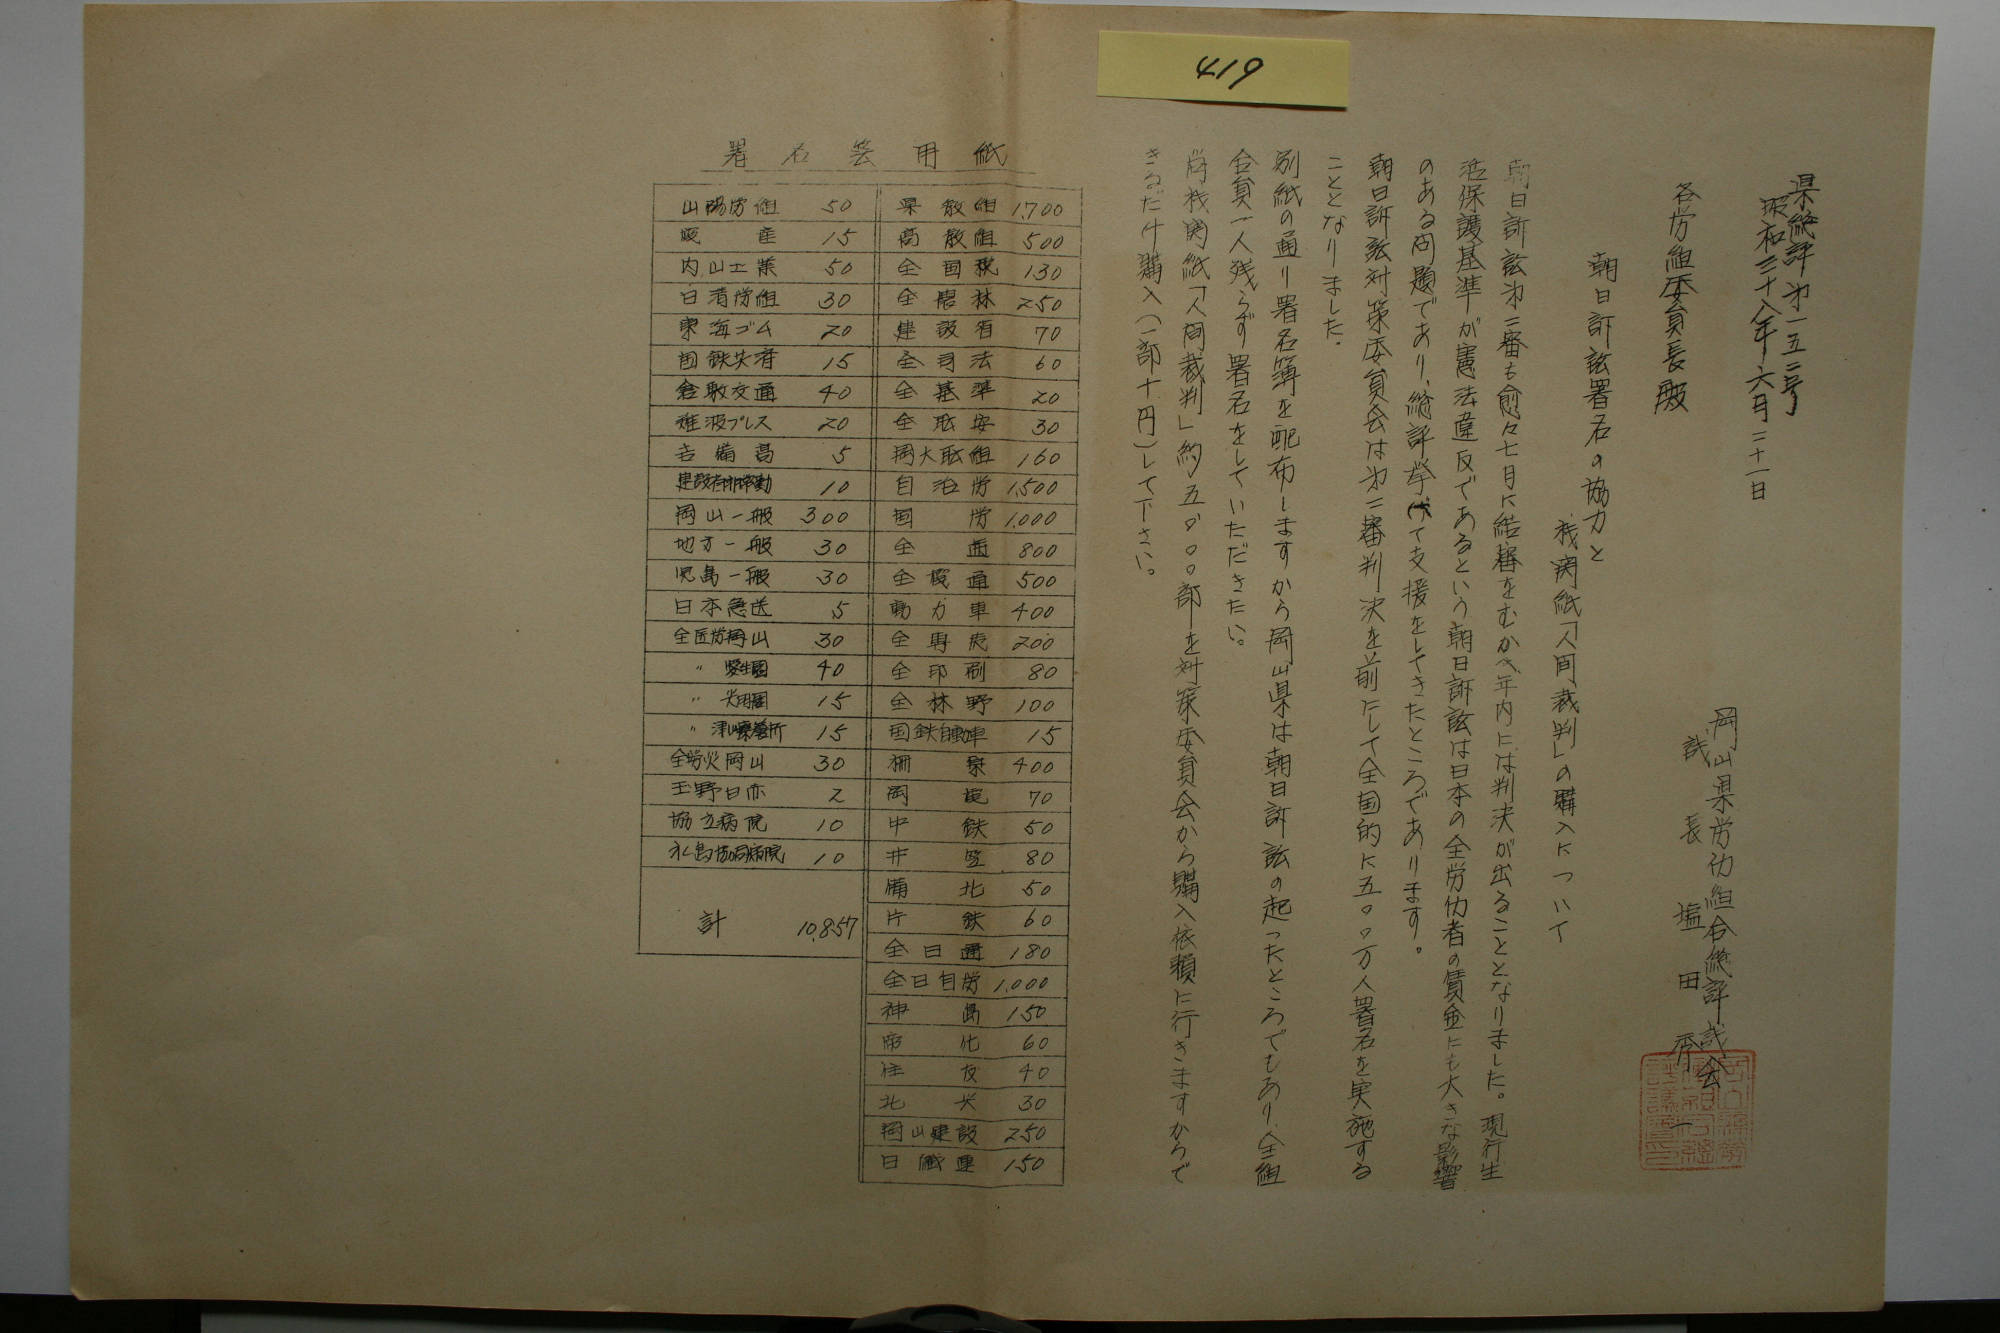 419
県総評第一五二号
昭和三十八年六月二十一日
岡山県労仂組合総評議会
議長 塩田秀一
各労組委員長殿
朝日訴訟署名の協力と
機関紙「人間裁判」の購入について
朝日訴訟第二審も愈々七月に結審をむかえ年内には判決が出ることとなりました。現行生
活保護基準が憲法違反であるという朝日訴訟は日本の全労仂者の賃金にも大きな影響
のある問題であり、総評挙げて支援をしてきたところであります。
朝日訴訟対策委員会は第二審判決を前にして全国的に五〇〇万人署名を実施する
こととなりました。
別紙の通り署名簿を配布しますから岡山県は朝日訴訟の起ったところでもあり、全組
合員一人残らず署名をしていただきたい。
尚機関紙「人間裁判」約五、〇〇〇部を対策委員会から購入依頼に行きますからで
きるだけ購入(一部十円)して下さい。
署名簿用紙
県教組 1,700
高教組 500
全国税 130
全農林 250
建設省 70
全司法 60
全基準 20
全職安 30
岡大職組 160
自治労 1,500
国労 1,000
全逓 800
全電通 500
動力車 400
全専売 200
全印刷 80
全林野 100
国鉄自動車 15
柵原 400
岡電 70
中鉄 50
井笠 80
備北 50
片鉄 60
全日通 180
全日自労 1,000
神島 150
帝化 60
住友 40
北興 30
岡山建設 250
日繊連 150
山陽労組 50
暖産 15
内山工業 50
日清労組 30
東海ゴム 20
国鉄共済 15
倉敷交通 40
難波プレス 20
吉備高 5
建設省非常勤 10
岡山一般 300
地方一般 30
児島一般 30
日本急送 5
全医労岡山 30
〃 愛生園 40
〃 光明園 15
〃 津山療養所 15
全労災岡山 30
玉野日赤 2
協立病院 10
水島協同病院 10
計 10,857